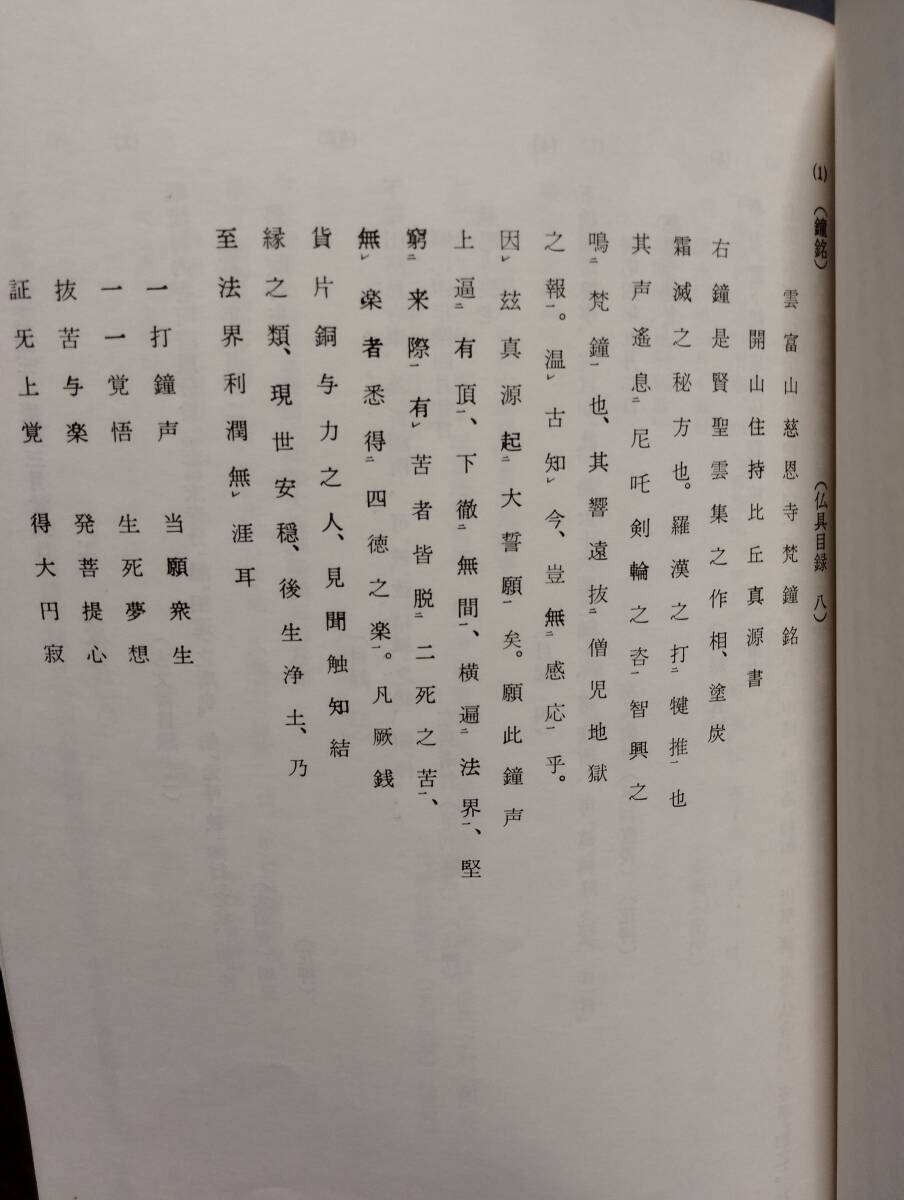 (1) (鐘銘) (仏具目録 八)
雲富山慈恩寺梵鐘銘
開山住持比丘真源書
右鐘是賢聖雲集之作相、塗炭
霜滅之秘方也。羅漢之打㆓犍推㆒也
其声遙息㆓尼吒剣輪之咨㆒智興之
鳴㆓梵鐘㆒也、其響遠抜㆓僧児地獄
之報㆒。温㆑古知㆑今、豈無㆓感応㆒乎。
因㆑玆真源起㆓大誓願㆒矣。願此鐘声
上逼㆓有頂㆒、下徹㆓無間㆒、横遍㆓法界㆒、堅
窮㆓来際㆒有㆑苦者皆脱㆓二死之苦㆒、
無㆑楽者悉得㆓四徳之楽㆒。凡厥銭
貨片銅与力之人、見聞触知結
縁之類、現世安穏、後生浄土、乃
至法界利潤無㆑涯耳
一打鐘声 当願衆生
一一覚悟 生死夢想
抜苦与楽 発菩提心
証旡上覚 得大円寂